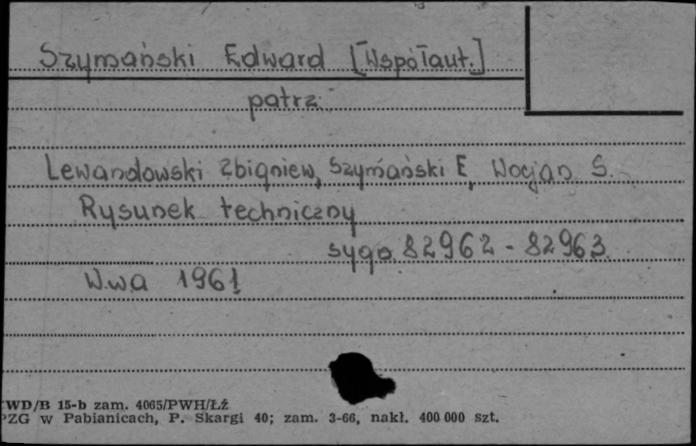 Szymański Edward [Współaut.]
patrz
Lewandowski Zbigniew, Szymański E, Wocjan S.
Rysunek techniczny
sygn. 82962 - 82963
W.wa 1961
WD/B 15-b zam. 4065/PWH/ŁŹ
PZG w Pabianicach, P. Skargi 40; zam. 3-66, nakł. 400 000 szt.